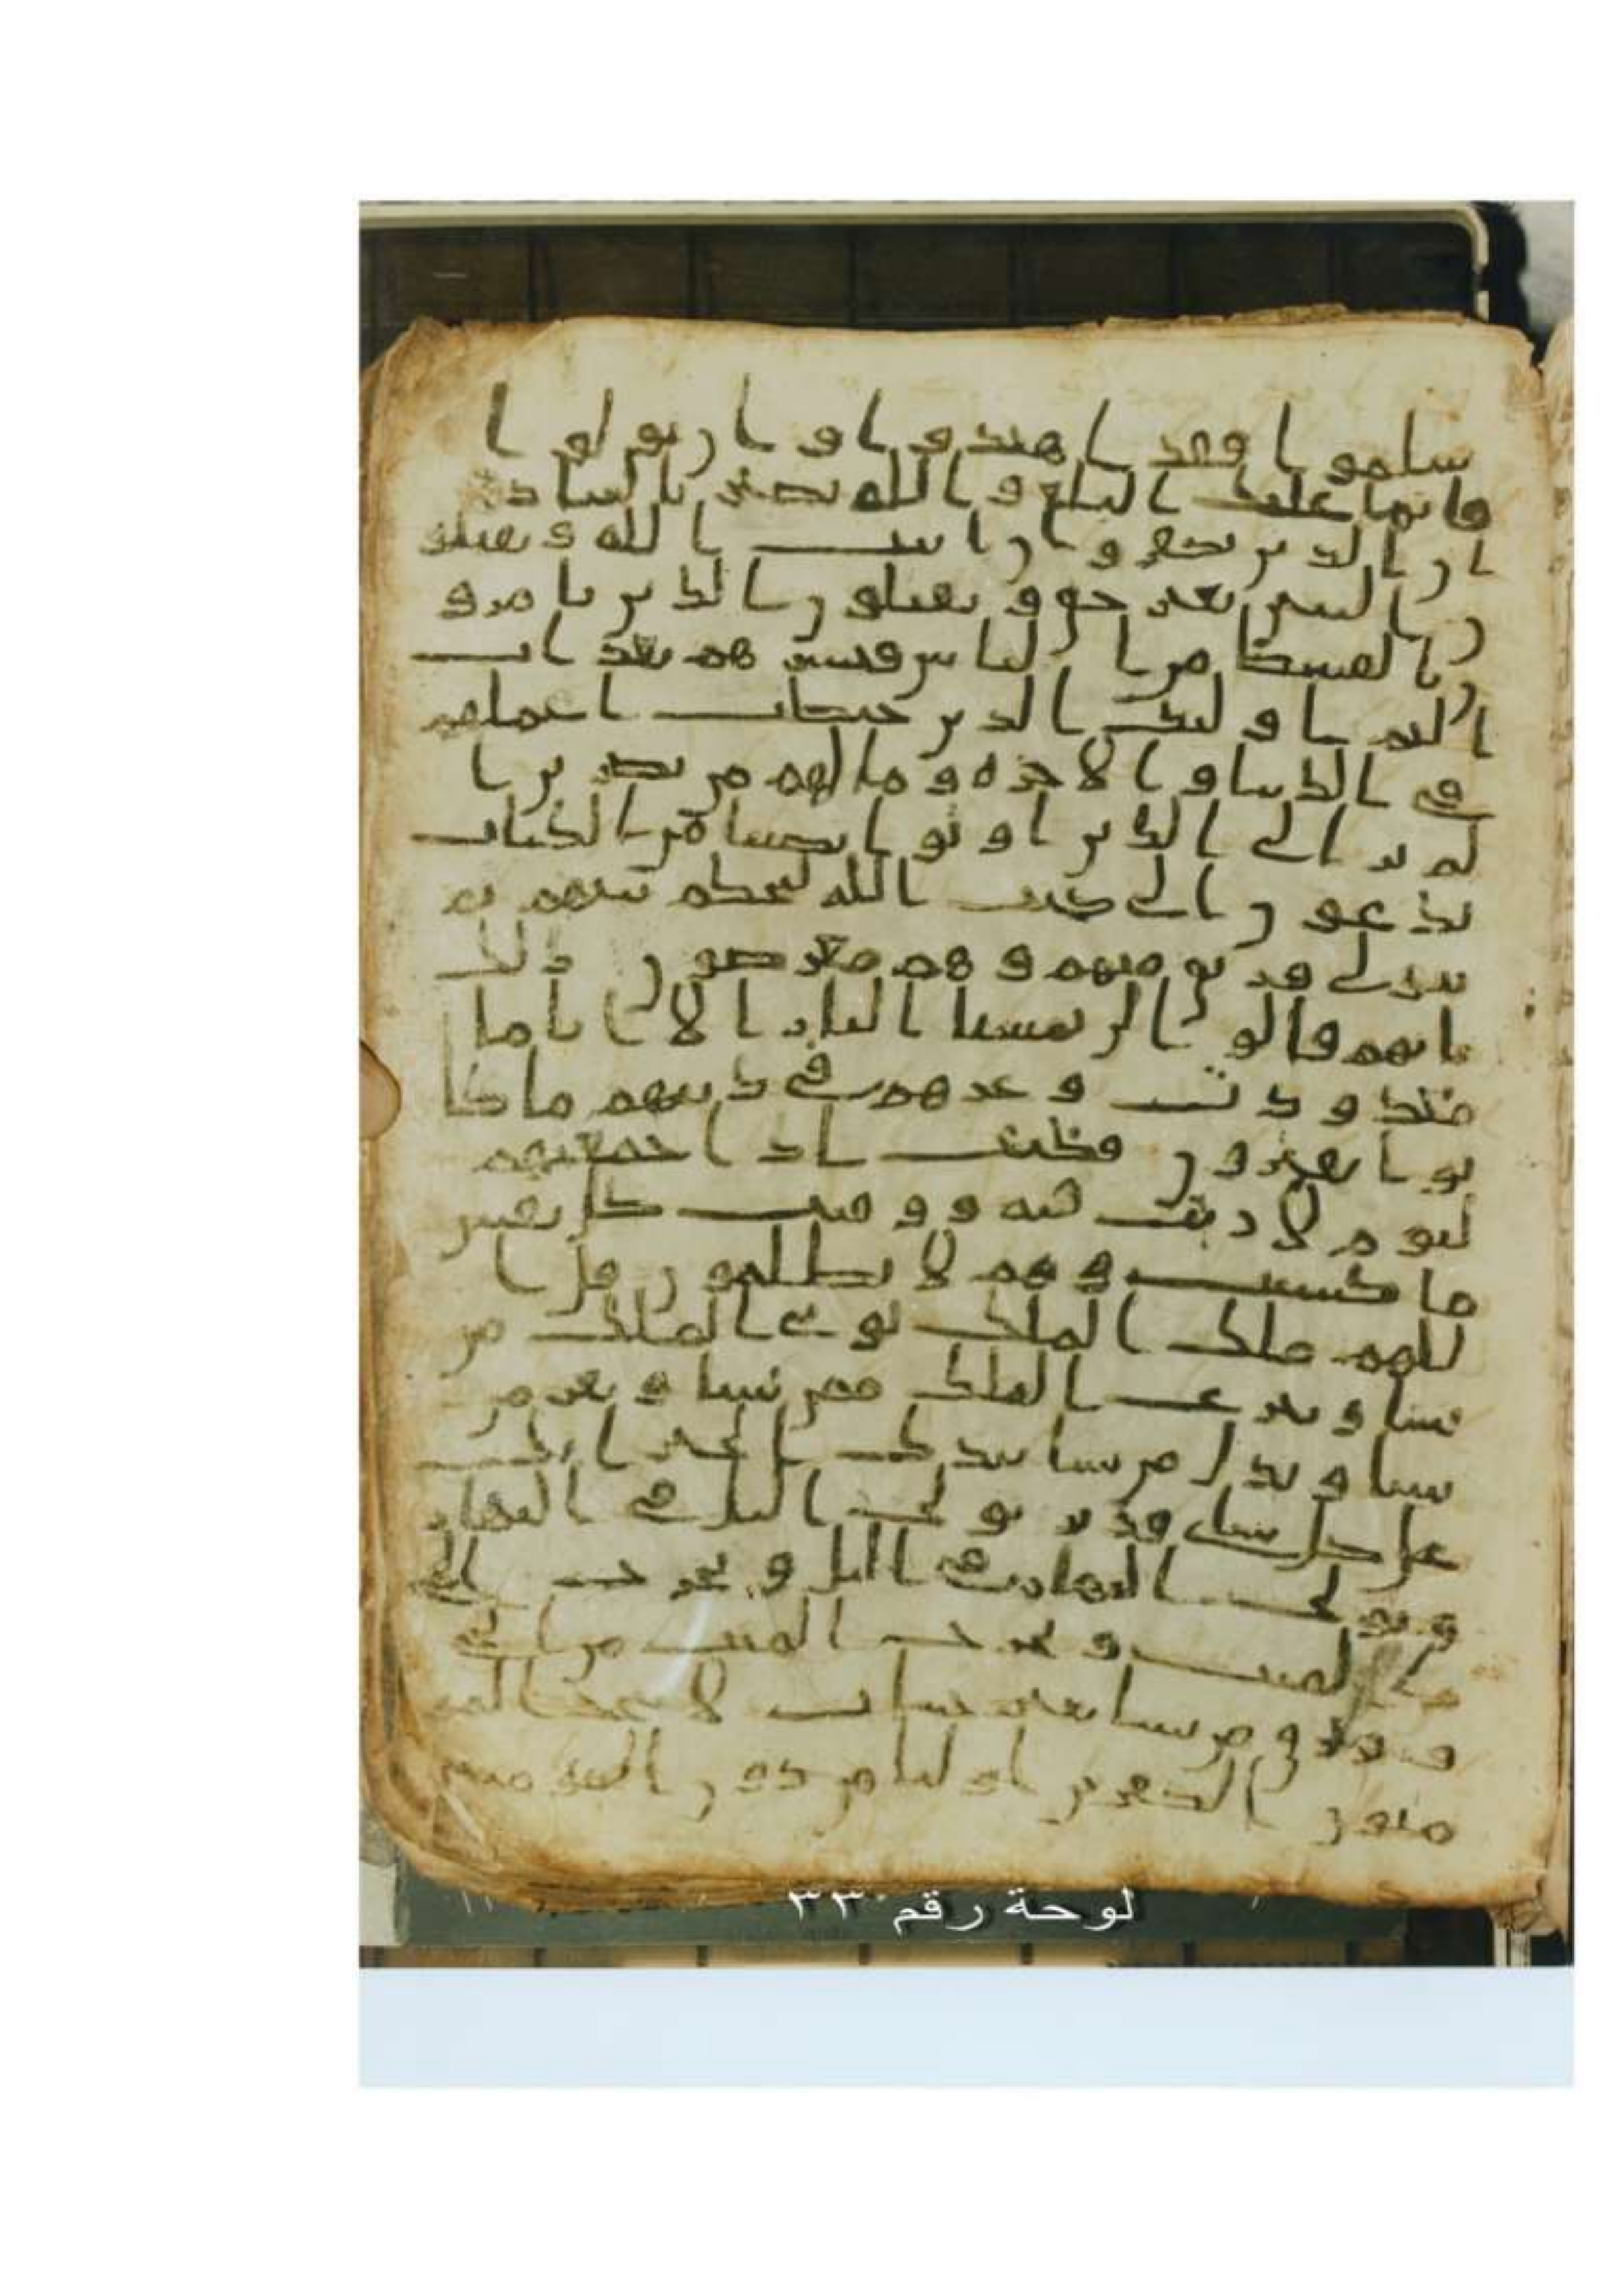 سلموا فقد اهتدوا وان تولوا
فانما عليك البلغ والله بصير بالعباد
ان الذين يكفرون بايت الله ويقتلو
ن النبين بغير حق ويقتلون الذين يامرو
ن بالقسط من الناس فبشرهم بعذاب
اليم اوليك الذين حبطت اعملهم
في الدنيا والاخرة وما لهم من نصرين ا
لم تر الى الذين اوتوا نصيبا من الكتاب
يدعون الى كتب الله ليحكم بينهم ثم
يتولى فريق منهم وهم معرضون ذلك
بانهم قالوا لن تمسنا النار الا اياما
معدودت وغرهم في دينهم ما كا
نوا يفترون فكيف اذا جمعنهم
ليوم لا ريب فيه ووفيت كل نفس
ما كسبت وهم لا يظلمون قل ا
للهم ملك الملك توتي الملك من
تشا وتنزع الملك ممن تشا وتعز من
تشا وتذل من تشا بيدك الخير انك
على كل شاي قدير تولج اليل في النهار
وتولج النهار في اليل وتخرج الحي
من الميت وتخرج الميت من الحي
وترزق من تشا بغير حساب لا يتخذ المو
منون الكفرين اوليا من دون المومنين
لوحة رقم ٣٣